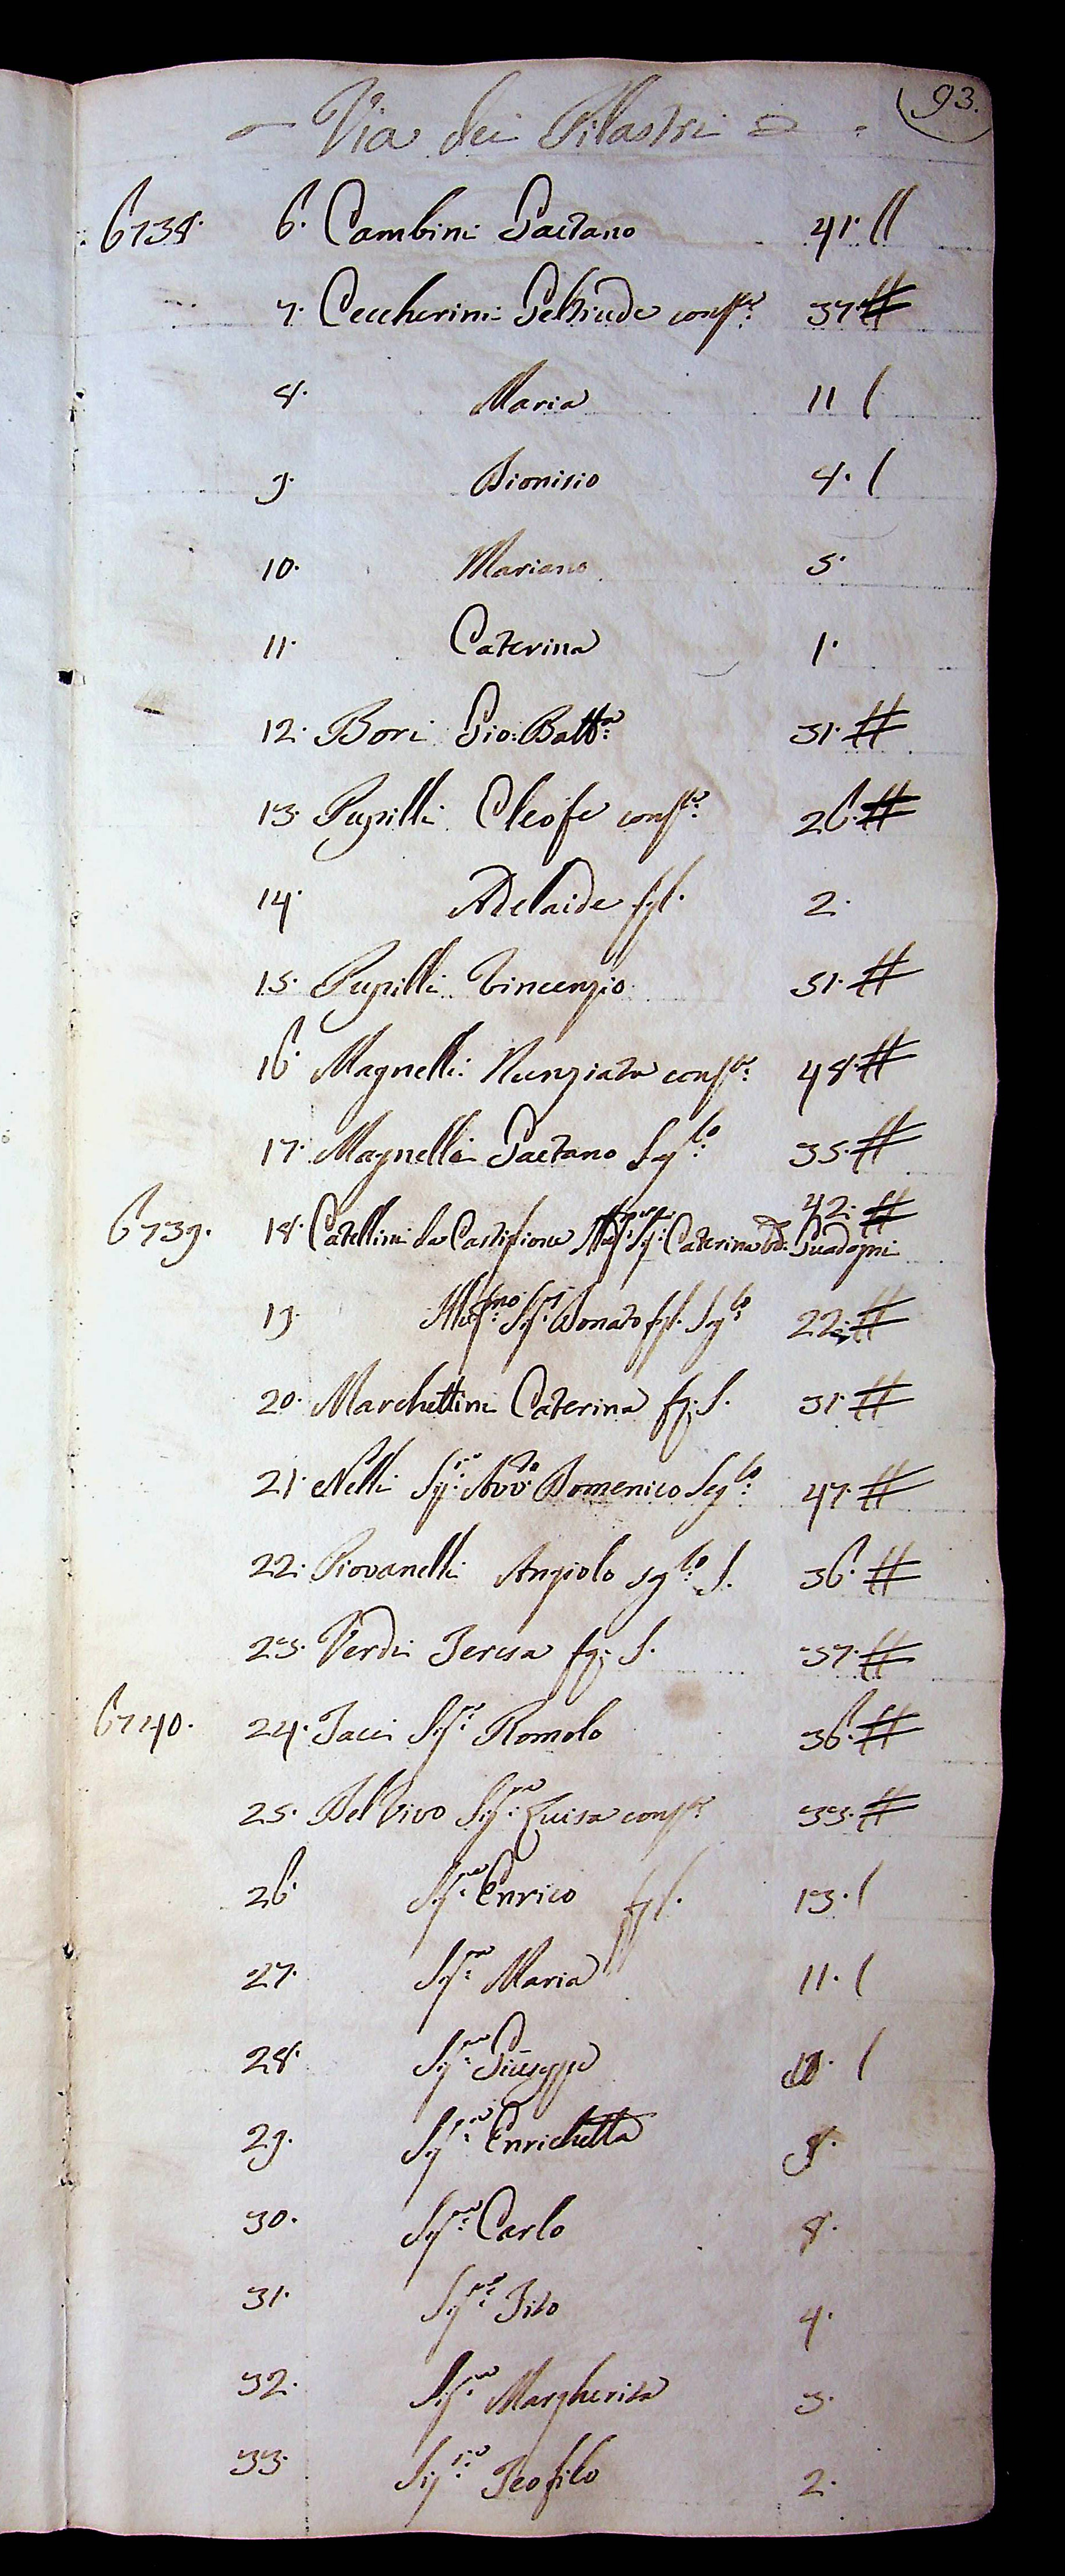 93.
Via dei Pilastri
6738. 6. Cambini Gaetano 41. //
7. Ceccherini Geltrude cons.te 37. #
8. Maria 11 /
9. Dionisio 8. /
10. Mariano 5.
11. Caterina 1.
12. Bori Gio: Batt.a 31. #
13. Pupilli Cleofe cons.te 26. #
14. Adelaide fgl. 2.
15. Pupilli Vincenzio 51. #
16. Magnelli Nunziata cons.te 48. #
17. Magnelli Gaetano Sg.lo 35. #
42. #
6739. 18. Catellini da Castiglione Sig. Caterina Vd. Guadagni
19. Ill.mo Sig.r Donato fgl. Sg.lo 22. #
20. Marchettini Caterina fg. S. 31. #
21. Nelli Sig.re Avv.to Domenico Sg.lo 47. #
22. Piovanelli Angiolo sg.lo S. 36. #
23. Verdi Teresa fg. S. 37. #
6740. 24. Jacci Sig.re Romolo 36. #
25. Del Vivo Sig.ra Luisa cons.te 33. #
26. Sig.re Enrico fgl. 13. /
27. Sig.ra Maria 11. /
28. Sig.re Giuseppe 10. /
29. Sig.ra Enrichetta 9.
30. Sig.re Carlo 8.
31. Sig.re Tito 4.
32. Sig.ra Margherita 3.
33. Sig.re Teofilo 2.